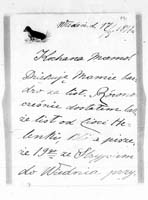 Wiedeń d. 17/
Kochana Mamo!
Dziękuję Mamie bar-
dzo za list. Równo-
cześnie dostałem tak-
że list od Cioci He-
lenki, pisze,
że 19go ze
do Wiednia przy